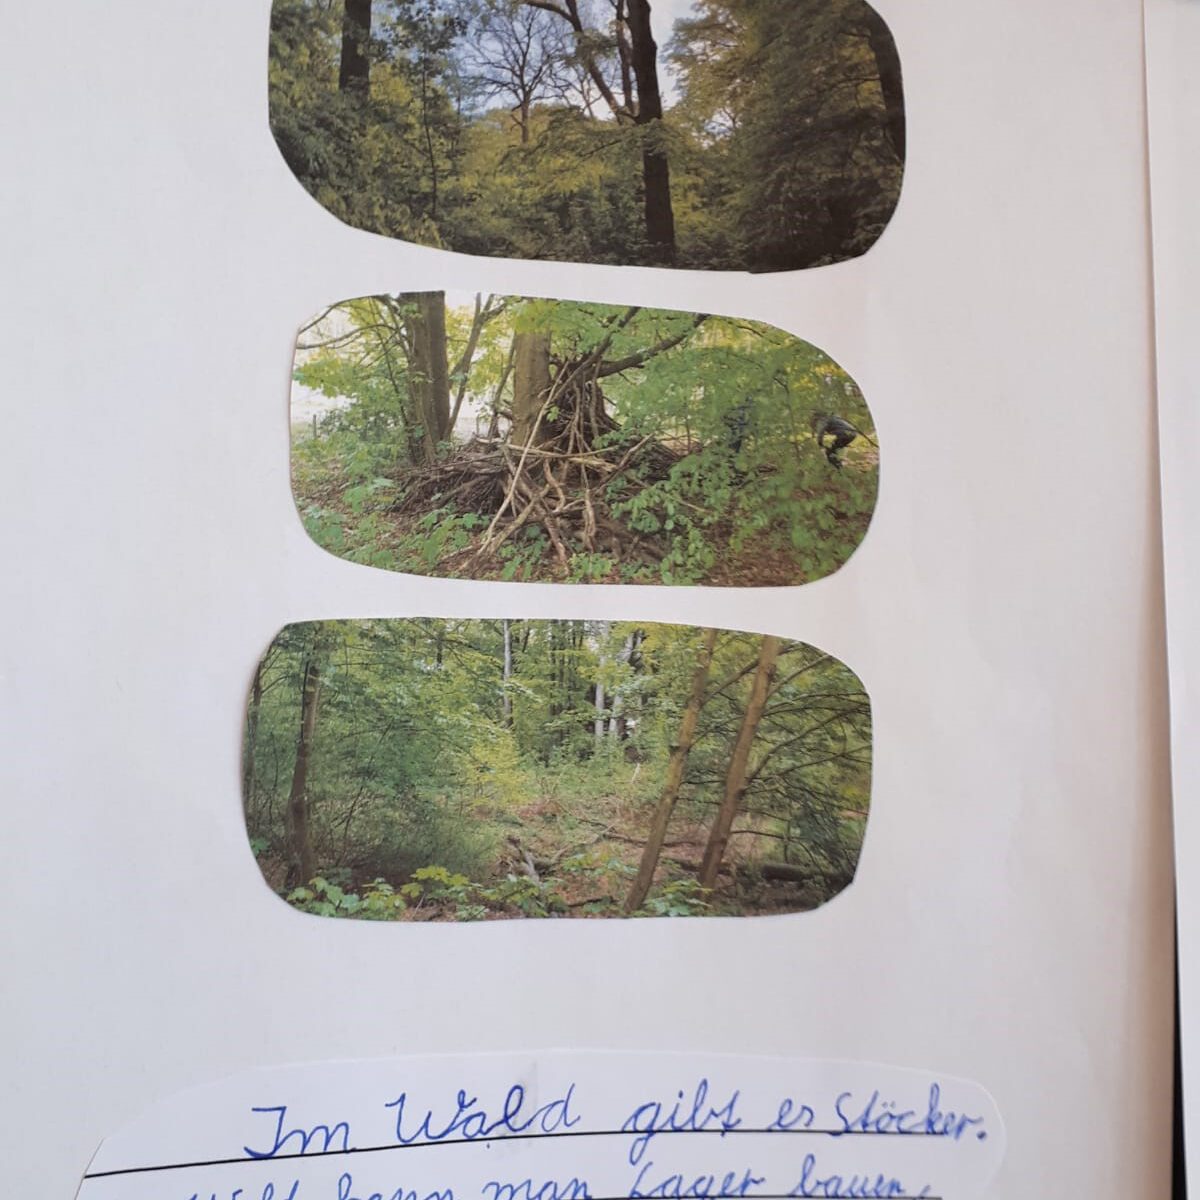 Im Wald gibt es Stöcker.
kann man Lager bauen.